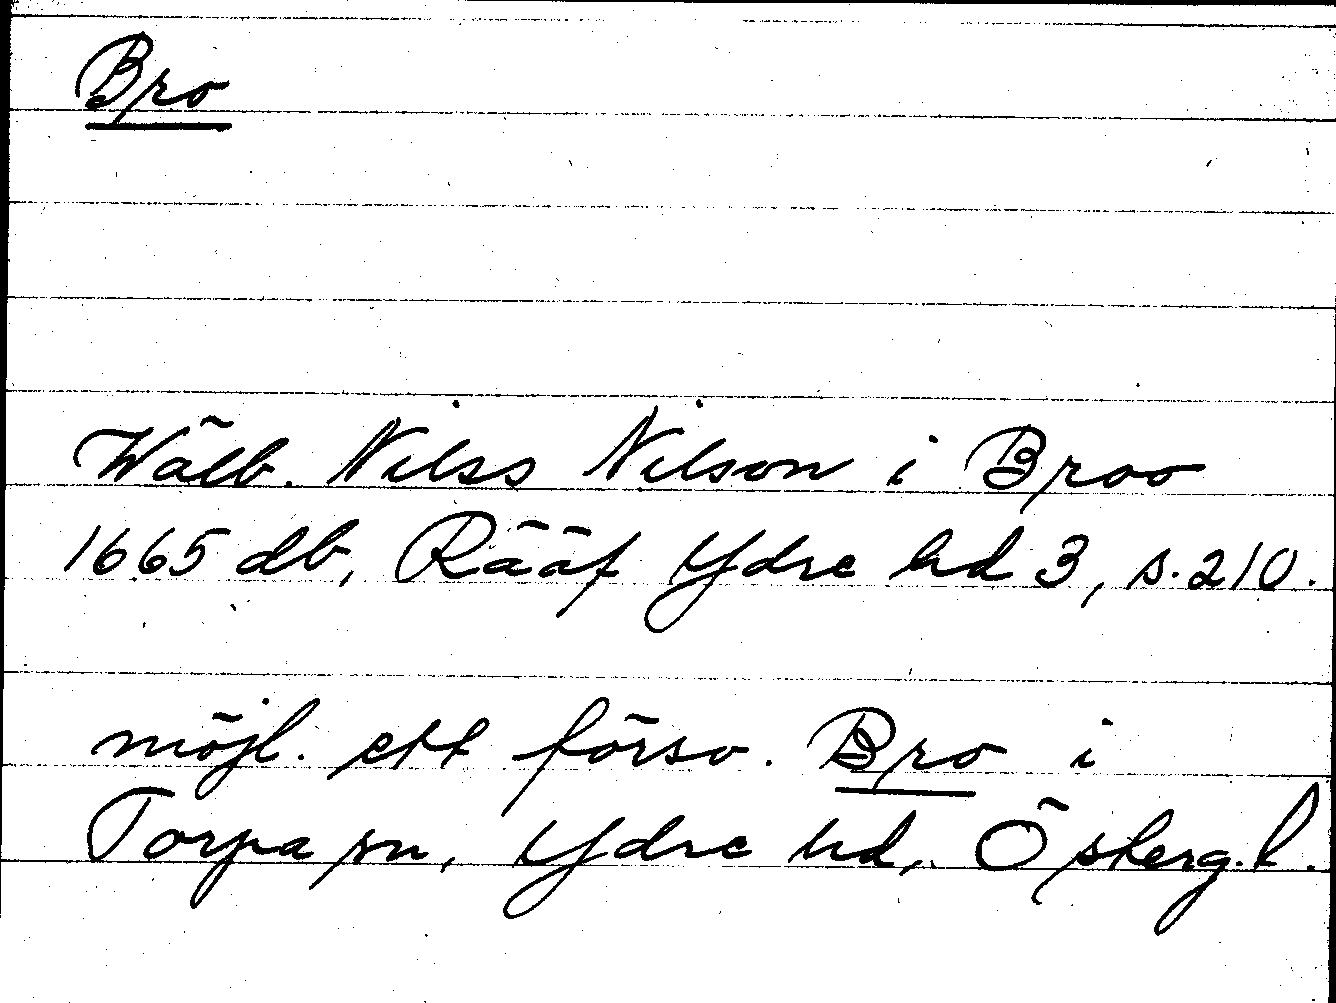 Bro
Wälb. Nilss Nilson i Broo
1665 db, Rääf Ydre hd 3, s. 210.
möjl. ett försv. Bro i
Torpa sn, Ydre hd, Österg. l.